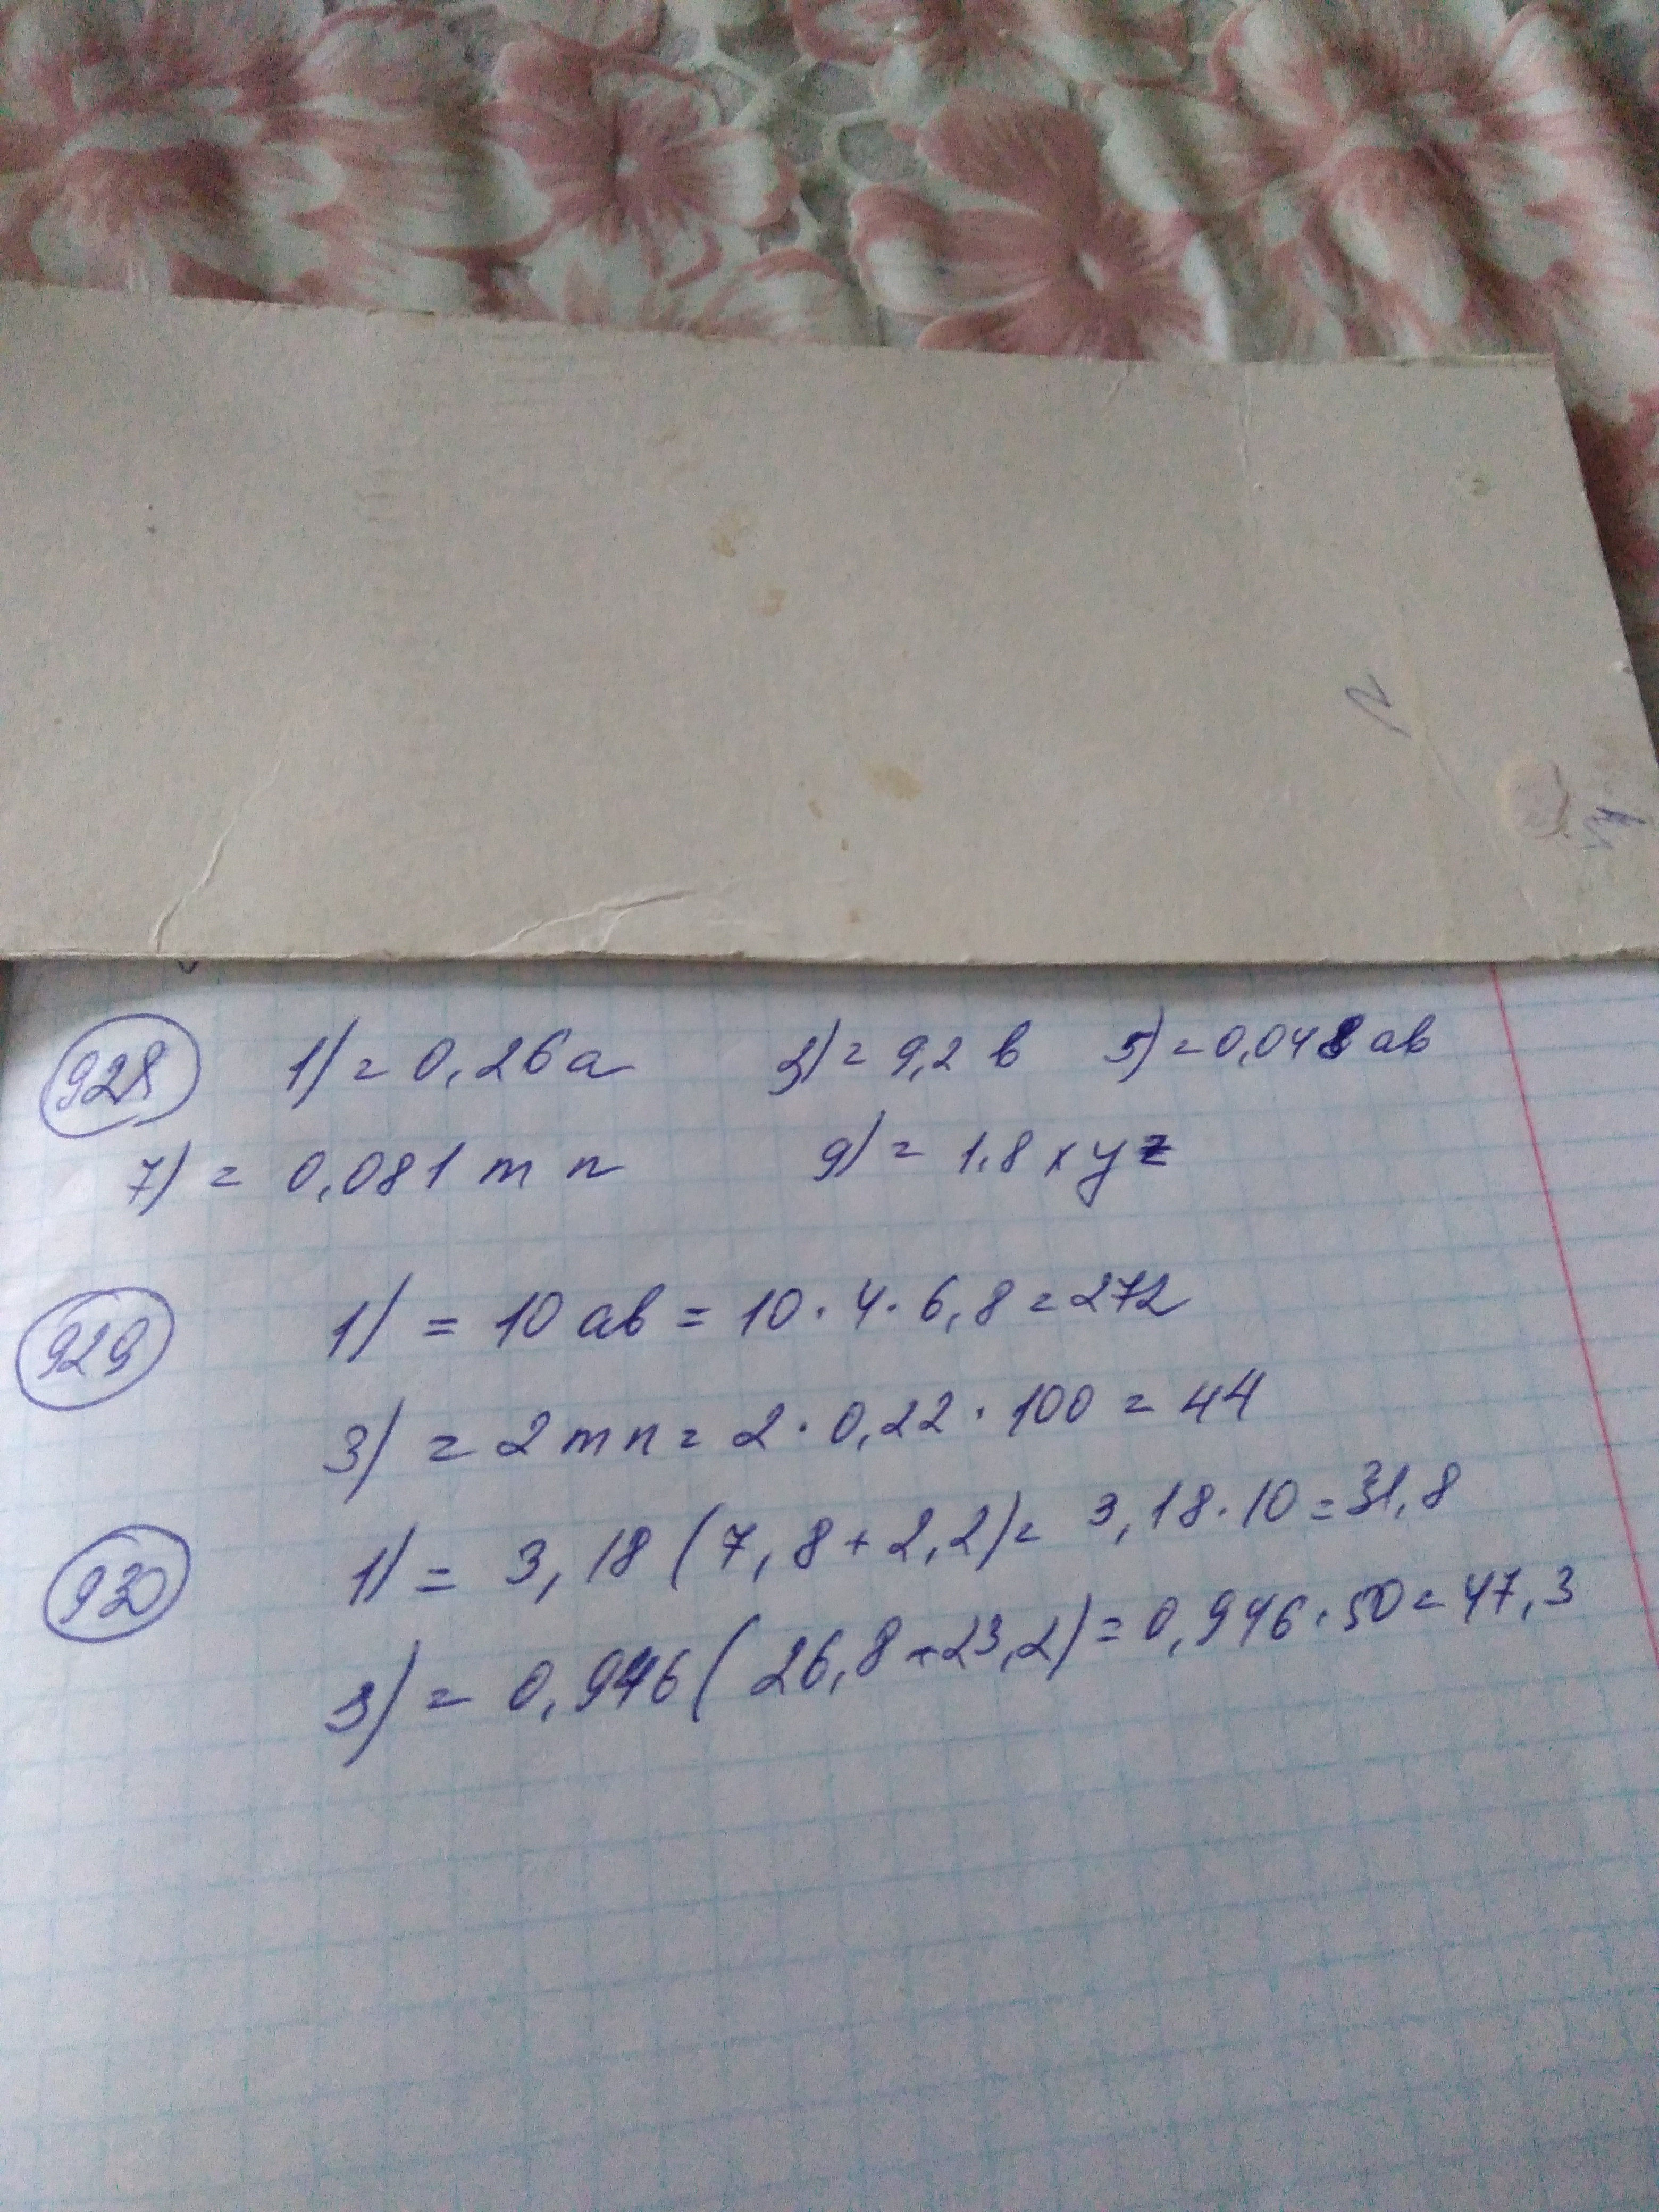 928 1) = 0,26a 3) = 9,2 b 5) = 0,048 ab
7) = 0,081 m n 9) = 1,8 x y z
929 1) = 10 ab = 10 · 4 · 6,8 = 272
3) = 2 m n = 2 · 0,22 · 100 = 44
930 1) = 3,18 (7,8 + 2,2) = 3,18 · 10 = 31,8
3) = 0,946 (26,8 + 23,2) = 0,946 · 50 = 47,3